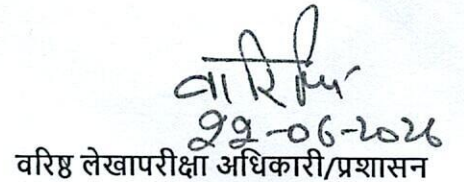 22-06-2026
वरिष्ठ लेखापरीक्षा अधिकारी/प्रशासन